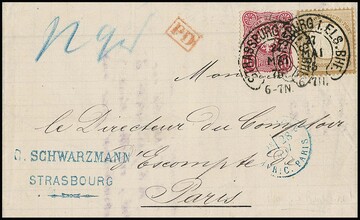 PD
STRASSBURG I. ELS. BHF.
27
MAI
6-7N.
Mon
le Directeur du Comptoir
d'Escompte de
Paris
G. SCHWARZMANN
STRASBOURG
PARIS